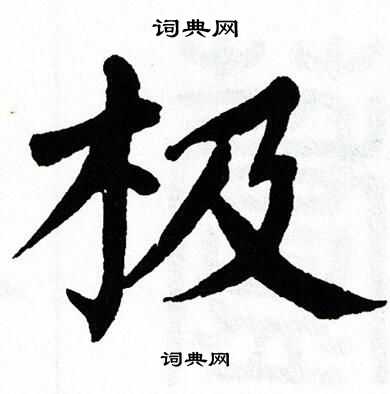 词典网
极
词典网